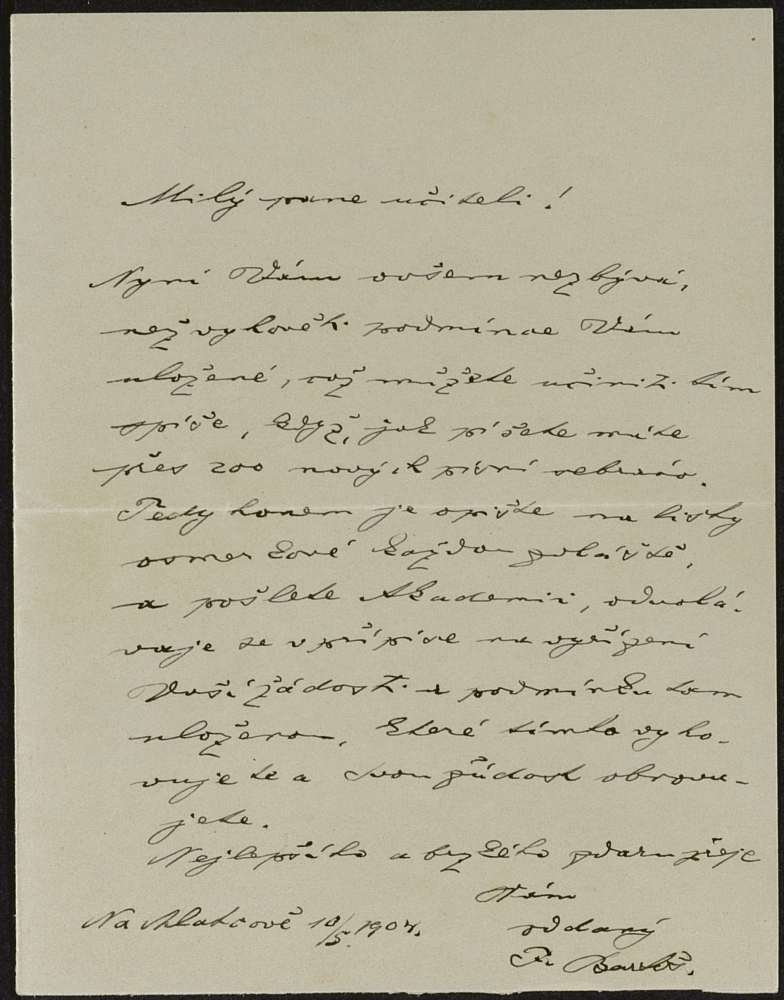 Milý pane učiteli!
Nyní Vám ovšem nezbývá,
než vyhověti podmínce Vám
uložené, což můžete učiniti tím
spíše, když, jak píšete máte
přes 200 nových písní sebráno.
Tedy honem je opište na lístky
osmerkové každou zvláště,
a pošlete Akademii, odvolá-
vaje se v přípise na vyřízení
Vaší žádosti a podmínku tam
uloženou, které tímto vyho-
vujete a svou žádost obnovu-
jete.
Nejlepšího a brzkého zdaru přeje
Vám
Na Mlatcově 10/5. 1904. oddaný
Fr. Bartoš.